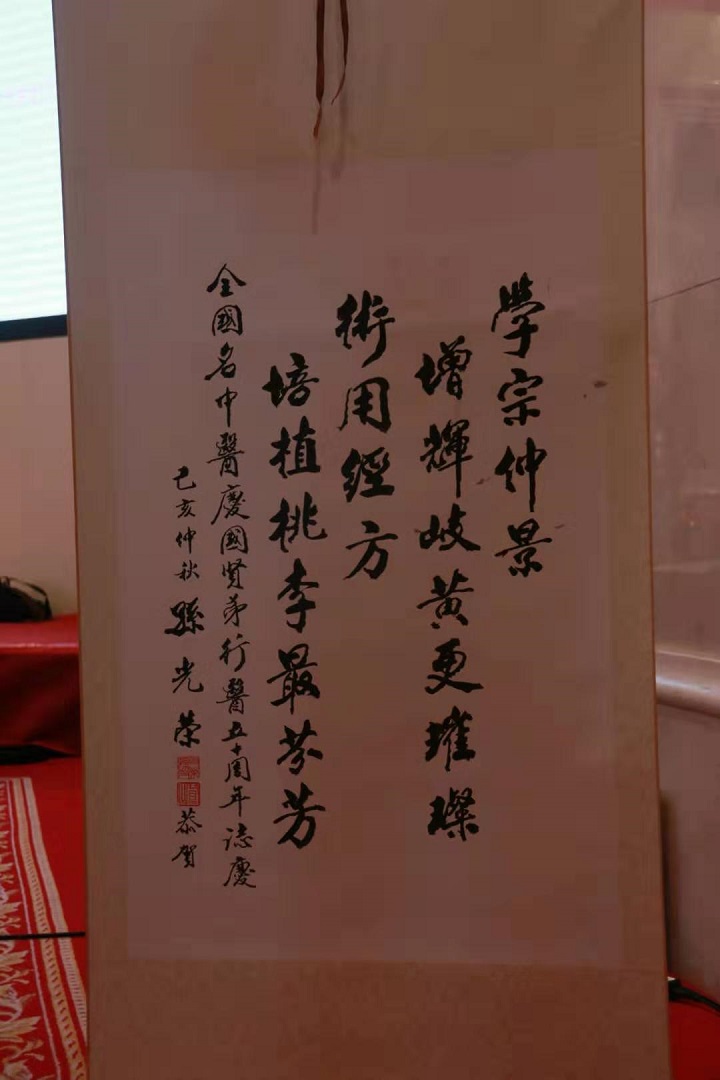 學宗仲景
增輝岐黃更璀璨
術用經方
培植桃李最芬芳
全國名中醫慶國賢弟行醫五十周年誌慶
己亥仲秋 孫光榮 恭賀